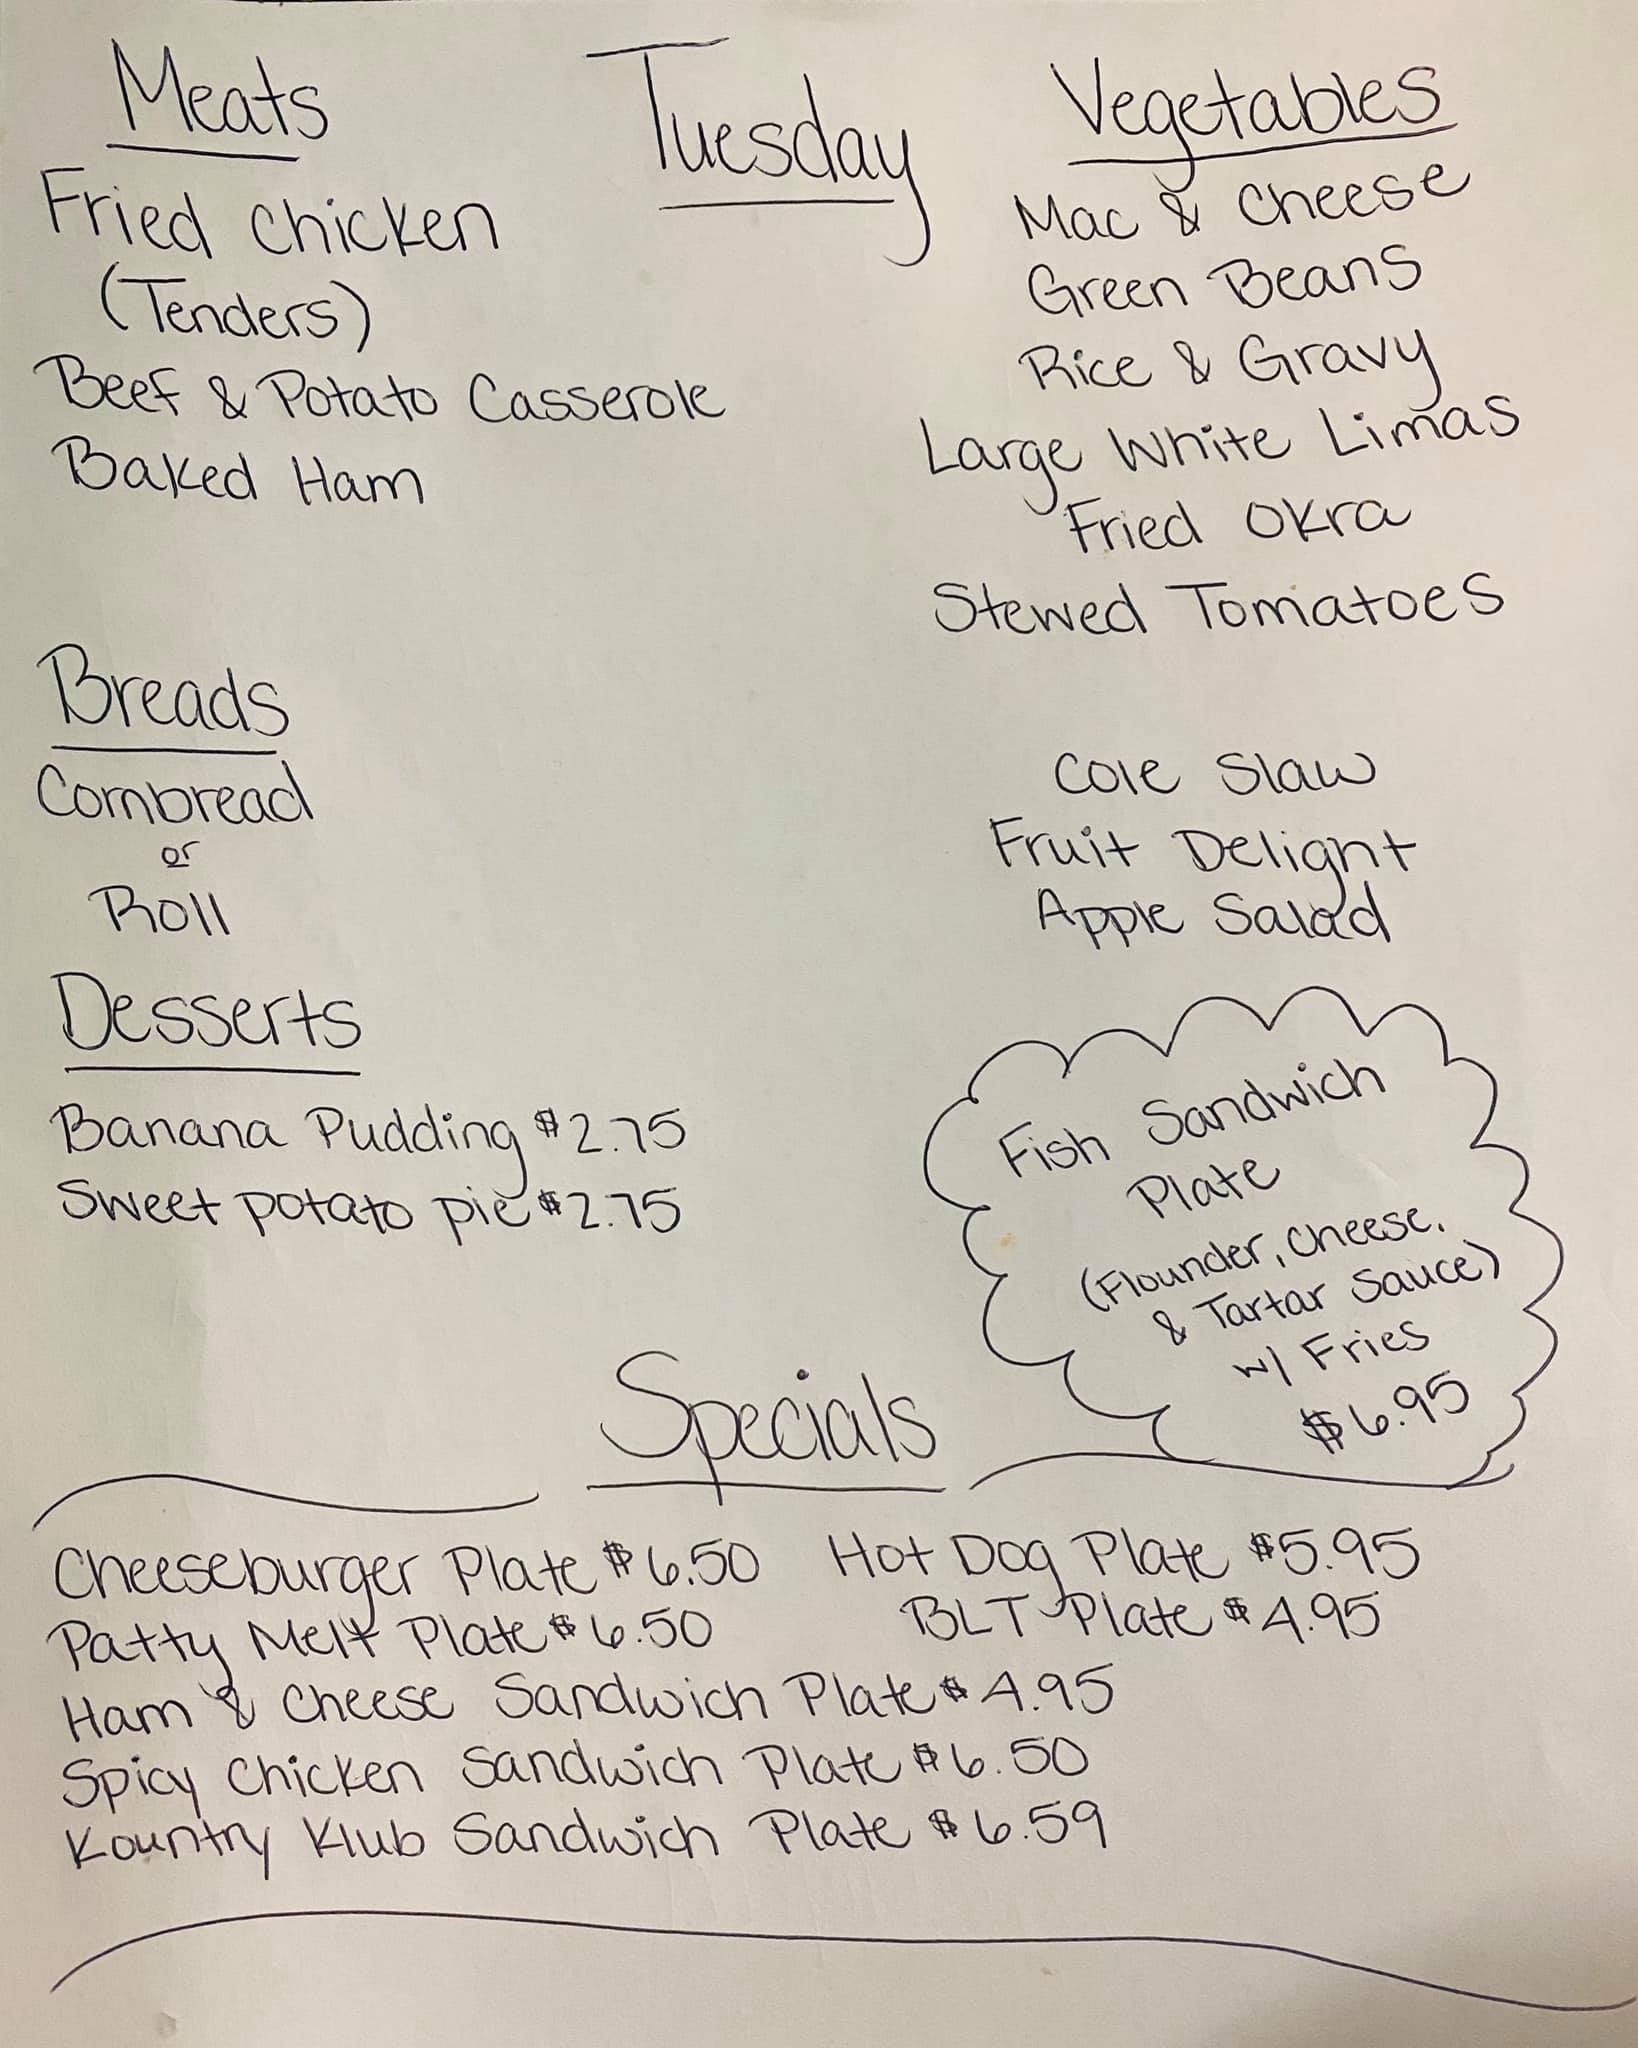 Tuesday
Meats
Fried Chicken
(Tenders)
Beef & Potato Casserole
Baked Ham
Breads
Cornbread
or
Roll
Desserts
Banana Pudding $2.75
Sweet potato pie $2.75
Vegetables
Mac & Cheese
Green Beans
Rice & Gravy
Large White Limas
Fried Okra
Stewed Tomatoes
Cole Slaw
Fruit Delight
Apple Salad
Fish Sandwich
Plate
(Flounder, Cheese,
& Tartar Sauce)
w/ Fries
$6.95
Specials
Cheeseburger Plate $6.50 Hot Dog Plate $5.95
Patty Melt Plate $6.50 BLT Plate $4.95
Ham & Cheese Sandwich Plate $4.95
Spicy Chicken Sandwich Plate $6.50
Kountry Klub Sandwich Plate $6.59